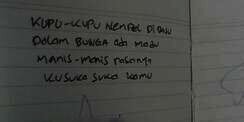 KUPU-KUPU NEMPEL DI BAJU
DALAM BUNGA ADA MADU
MANIS-MANIS RASANYA
KUSUKA SUKA KAMU